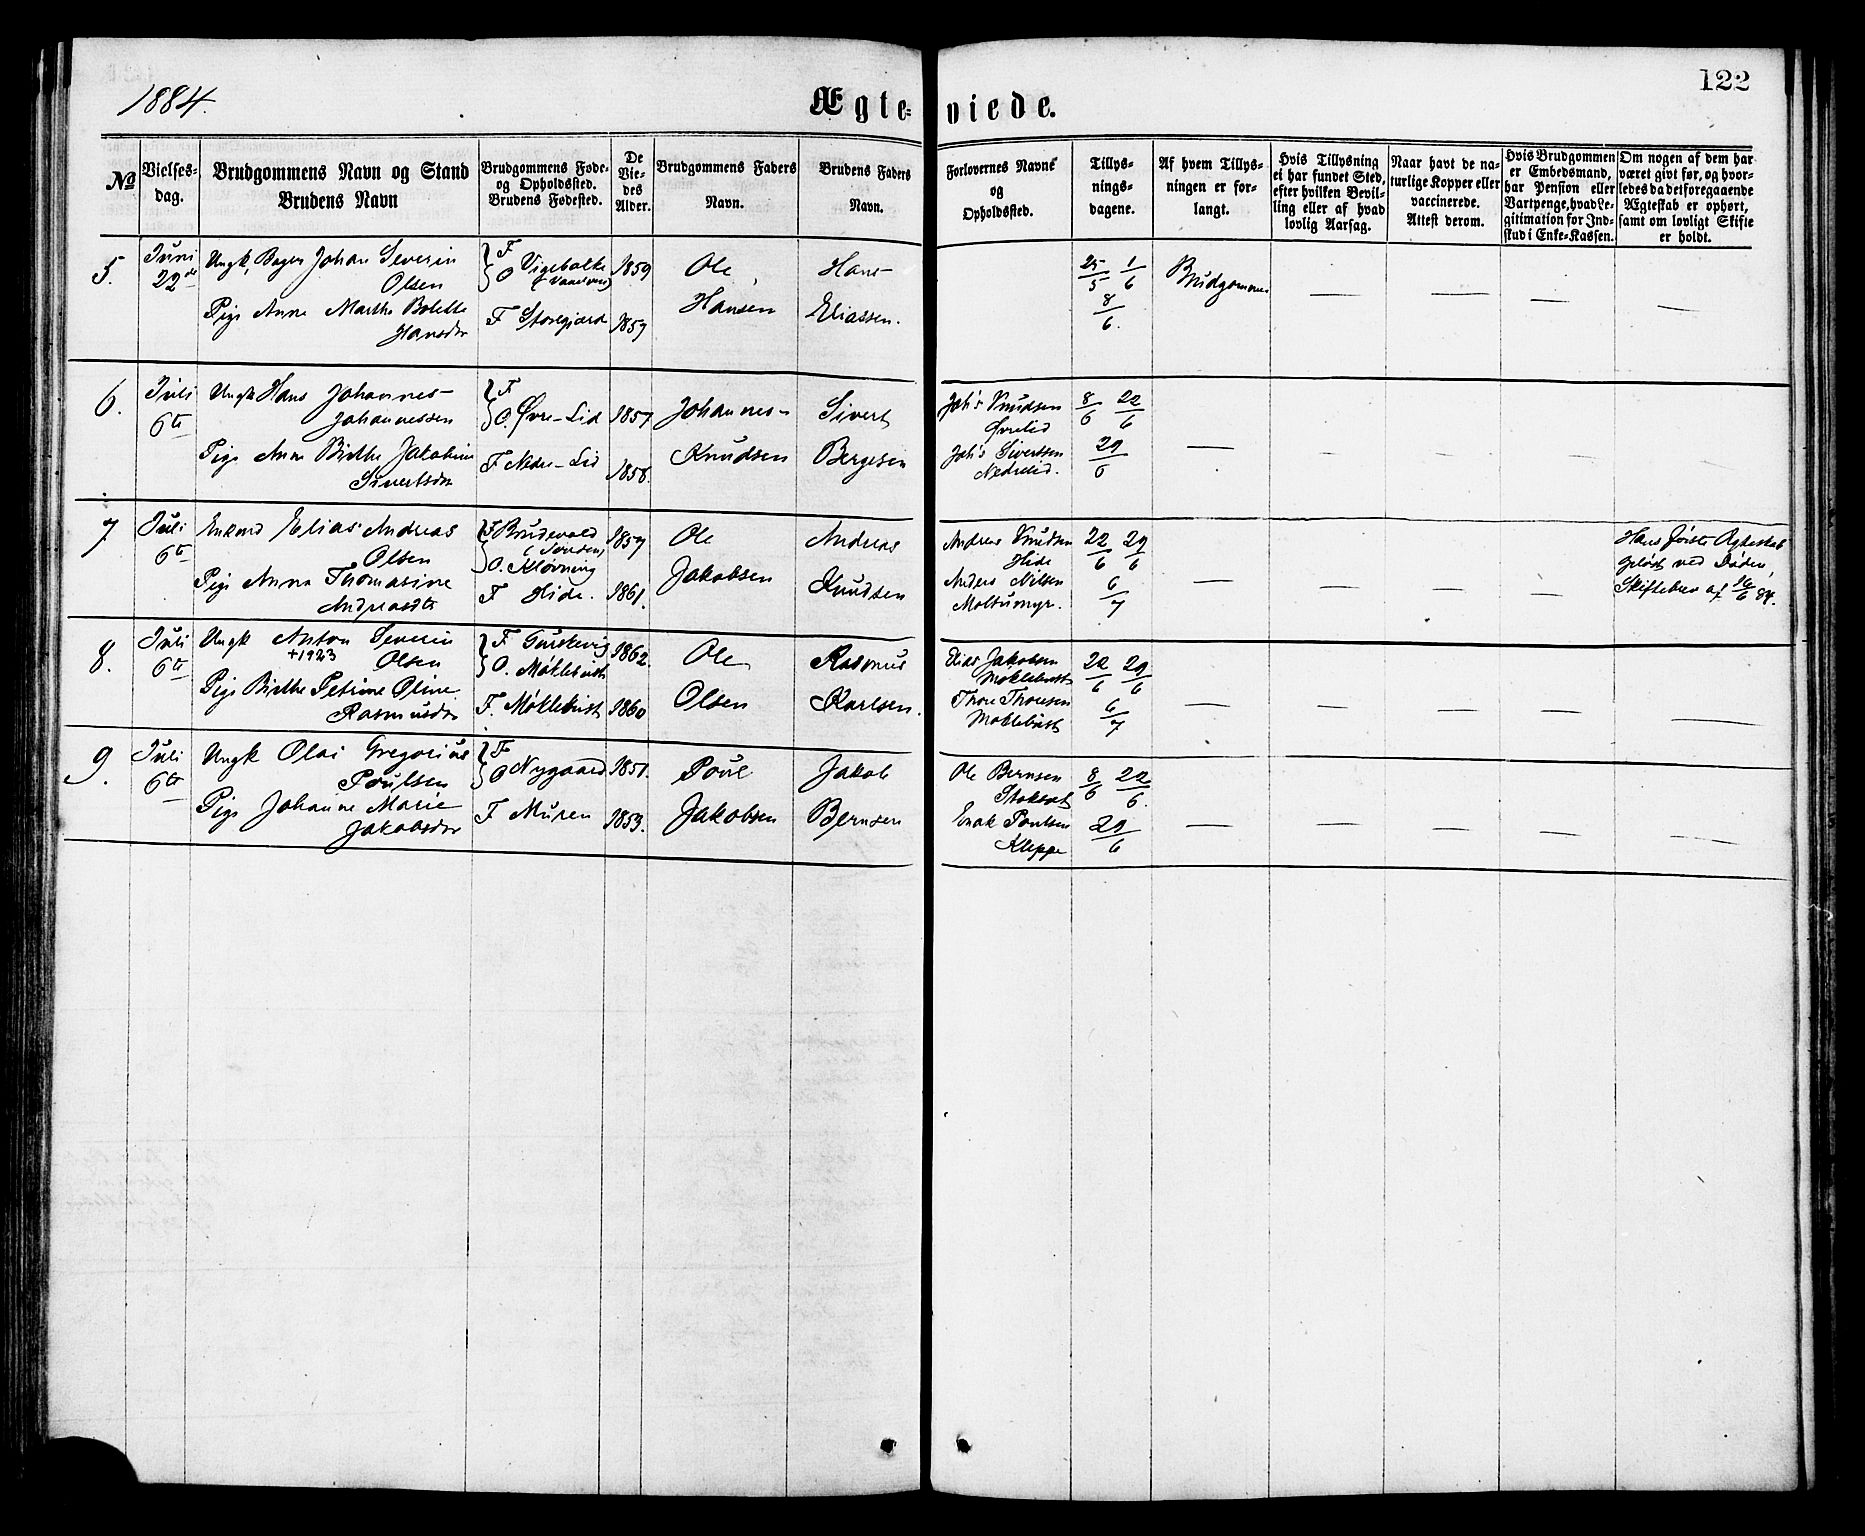 1884.
Ægte-
viede.
122
No
Vielses-
dag.
Brudgommens Navn og Stand
Brudens Navn
Brudgommens Føde-
og Opholdssted.
Brudens Fødested.
De
Vie-
des
Alder.
Brudgommens Faders
Navn.
Brudens Faders
Navn.
Forlovernes Navne
og
Opholdssted.
Tillys-
nings-
dagene.
Af hvem Tillys-
ningen er for-
langt.
Hvis Tillysning
ei har fundet Sted,
efter hvilken Bevil-
ling eller af hvad
lovlig Aarsag.
Naar havt de na-
turlige Kopper eller
vaccinerede.
Attest derom.
Hvis Brudgommen
er Embedsmand,
har Pension eller
Vartpenge, hvad Le-
gitimation for Ind-
skud i Enke-Kassen.
Om nogen af dem har
været givt før, og hvor-
ledes da det foregaaende
Ægteskab er ophørt,
samt om lovligt Skifte
er holdt.
5.
Juni
22de
Ungk, Bager Johan Severin
Olsen
Pige Anne Marthe Bolette
Hansdtr
F
O Vigebakke
F Storegjærd
1859
1857
Ole
Hansen
Hans
Eliassen.
25/5 1/6
8/6.
Brudgommen
6.
Juli
6te
Ungk Hans Johannes
Johannessen
Pige Anne Birthe Jakobine
Sivertsdtr
F
O. Øvre-Lid
F Nedre-Lid
1857
1858.
Johannes
Knudsen
Sivert
Bergesen
Joh's Knudsen
Øvrelid
Joh's Sivertsen
Nedrelid.
8/6 22/6
29/6
7
Juli
6te
Enkemd Elias Andreas
Olsen
Pige Anna Thomasine
Andreasdtr
F Brudevold
O. Kløvning
F Hide.
1857
1861.
Ole
Jakobsen
Andreas
Knudsen
Andreas Knudsen
Hide
Anders Nilsen
Moltumyr.
22/6 29/6
6/7
Hans første Ægteskab
opløst ved Døden,
Skiftebrev af 16/6 84.
8.
Juli
6te
Ungk Anton Severin
+1923 Olsen
Pige Birthe Petrine Oline
Rasmusdtr
F Gurskevig
O. Møklebust
F. Møklebust
1862.
1860
Ole
Olsen
Rasmus
Karlsen.
Elias Jakobsen
Møklebust
Thore Thoresen
Møklebust
22/6 29/6
6/7
9.
Juli
6te
Ungk Olai Gregorius
Poulsen
Pige Johanne Marie
Jakobsdtr
F
O Nygaard
F Muren
1851.
1853.
Poul
Jakobsen
Jakob
Bernsen
Ole Bernsen
Stokset
Enok Poulsen
Kleppe
8/6 22/6.
29/6